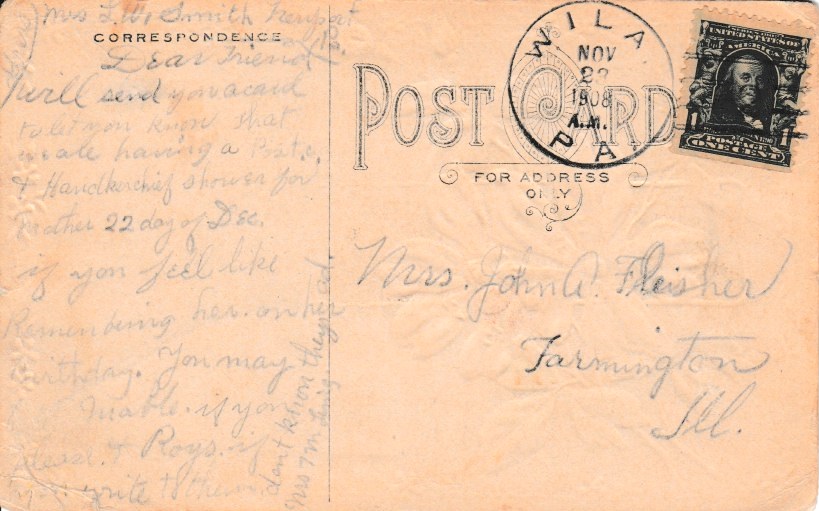 Mrs L. W. Smith
CORRESPONDENCE
Dear Friend
I will send you a card
to let you know that
we are having a Post c.
& Handkerchief shower for
Mother 22 day of Dec.
if you feel like
Remembering her on her
birthday. You may
Mable. if you
please. & Roys. if
you write to them.
dont know they ad.
Mrs
POST CARD
FOR ADDRESS
ONLY
WILA
NOV
1908
A.M.
PA
UNITED STATES
OF AMERICA
1 1
POSTAGE
ONE CENT
Mrs. John A. Fleisher
Farmington
Ill.